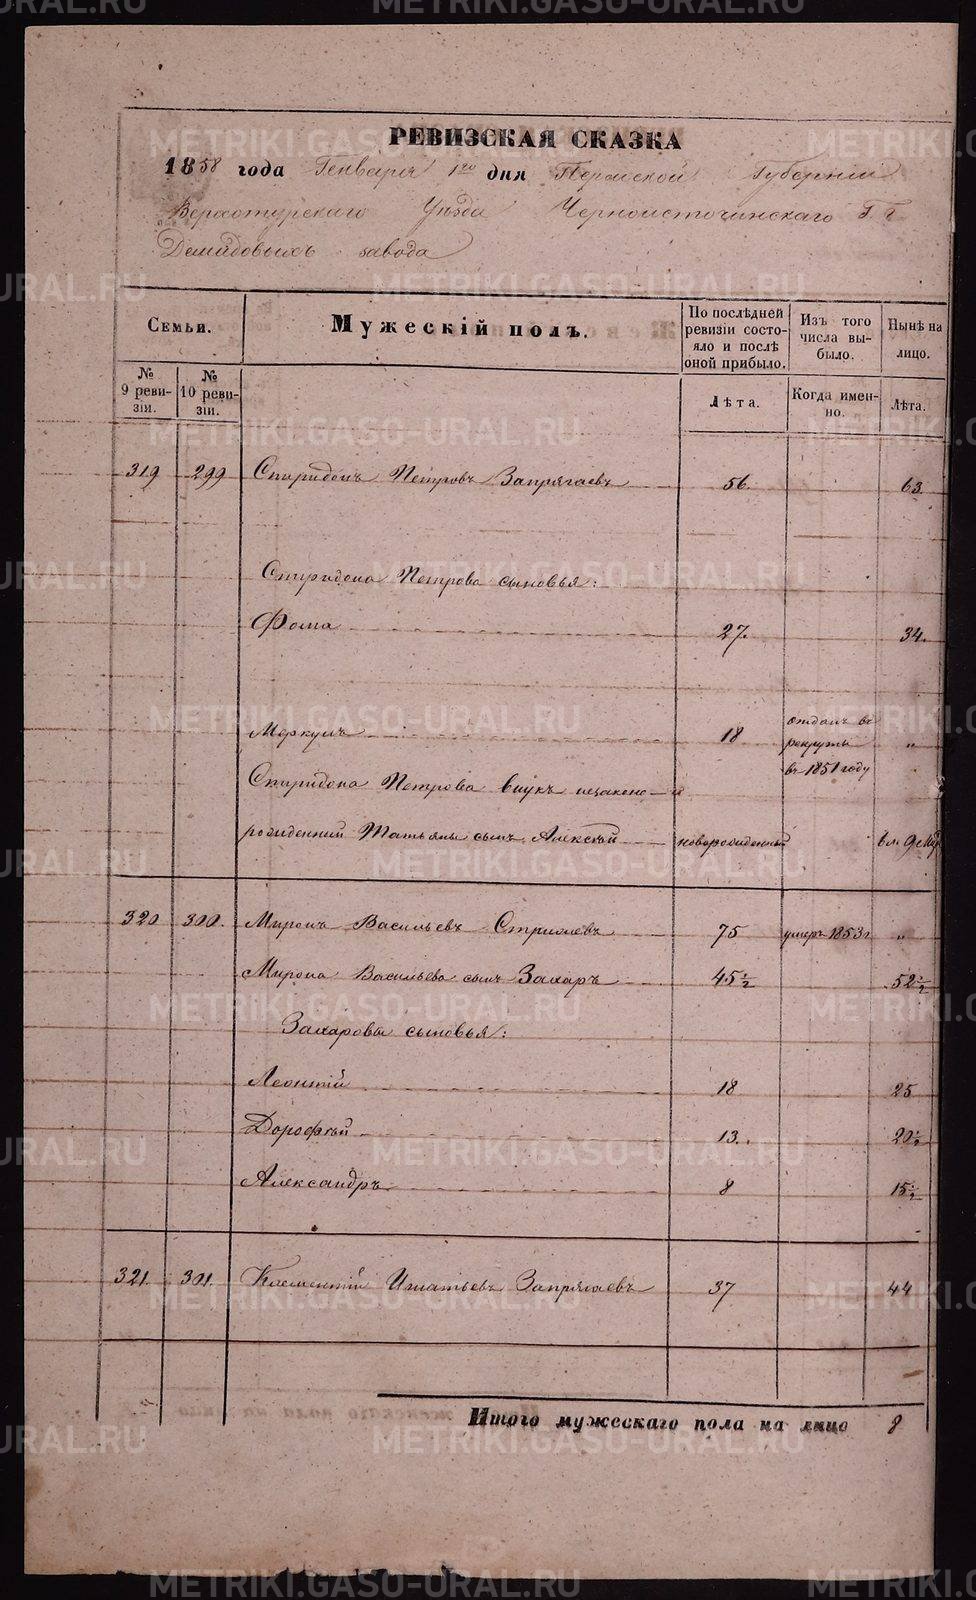 РЕВИЗСКАЯ СКАЗКА
1858 года Генваря 1го дня Пермской Губерніи
Верхотурскаго Уѣзда Черноисточинскаго Г.Г.
Демидовыхъ завода
Семьи.
Мужескій полъ.
По послѣдней ревизіи состояло и послѣ оной прибыло.
Изъ того числа выбыло.
Нынѣ на лицо.
№ 9 ревизіи.
№ 10 ревизіи.
Лѣта.
Когда именно.
Лѣта.
319 299 Спиридонъ Петровъ Запрягаевъ 56. 63.
Спиридона Петрова сыновья:
Фома 27. 34.
Меркулъ 18 отданъ въ рекруты въ 1851 году „
Спиридона Петрова внукъ незаконо-
рожденный Татьяны сынъ Алексѣй новорожденный
320 300. Миронъ Васильевъ 75 умеръ 1853 г „
Мирона Васильева сынъ Захаръ 45½ 52½
Захаровы сыновья:
Леонтій 18 25
Дорофѣй 13. 20½
Александръ 8 15½
321. 301. Клементій Игнатьевъ Запрягаевъ 37 44
Итого мужескаго пола на лицо 8
METRIKI.GASO-URAL.RU